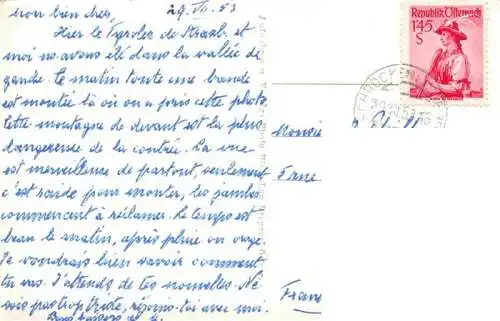 mon bien cher, 29.VII.53
Hier le Tyroler de Strasb. et
moi nous avons été dans la vallée de
gande. Le matin toute une bande
est montée là où on a pris cette photo.
Cette montagne de devant est la plus
dangereuse de la contrée. La vue
est merveilleuse de partout, seulement
c'est raide pour monter, les jambes
commencent à réclamer. Le temps est
beau le matin, après pluie ou orage.
Je voudrais bien savoir comment
tu vas. J'attends de tes nouvelles. Ne
sois pas trop triste, réjouis-toi avec moi.
Bons baisers
Republik Österreich
1.45
S
Monsie
France